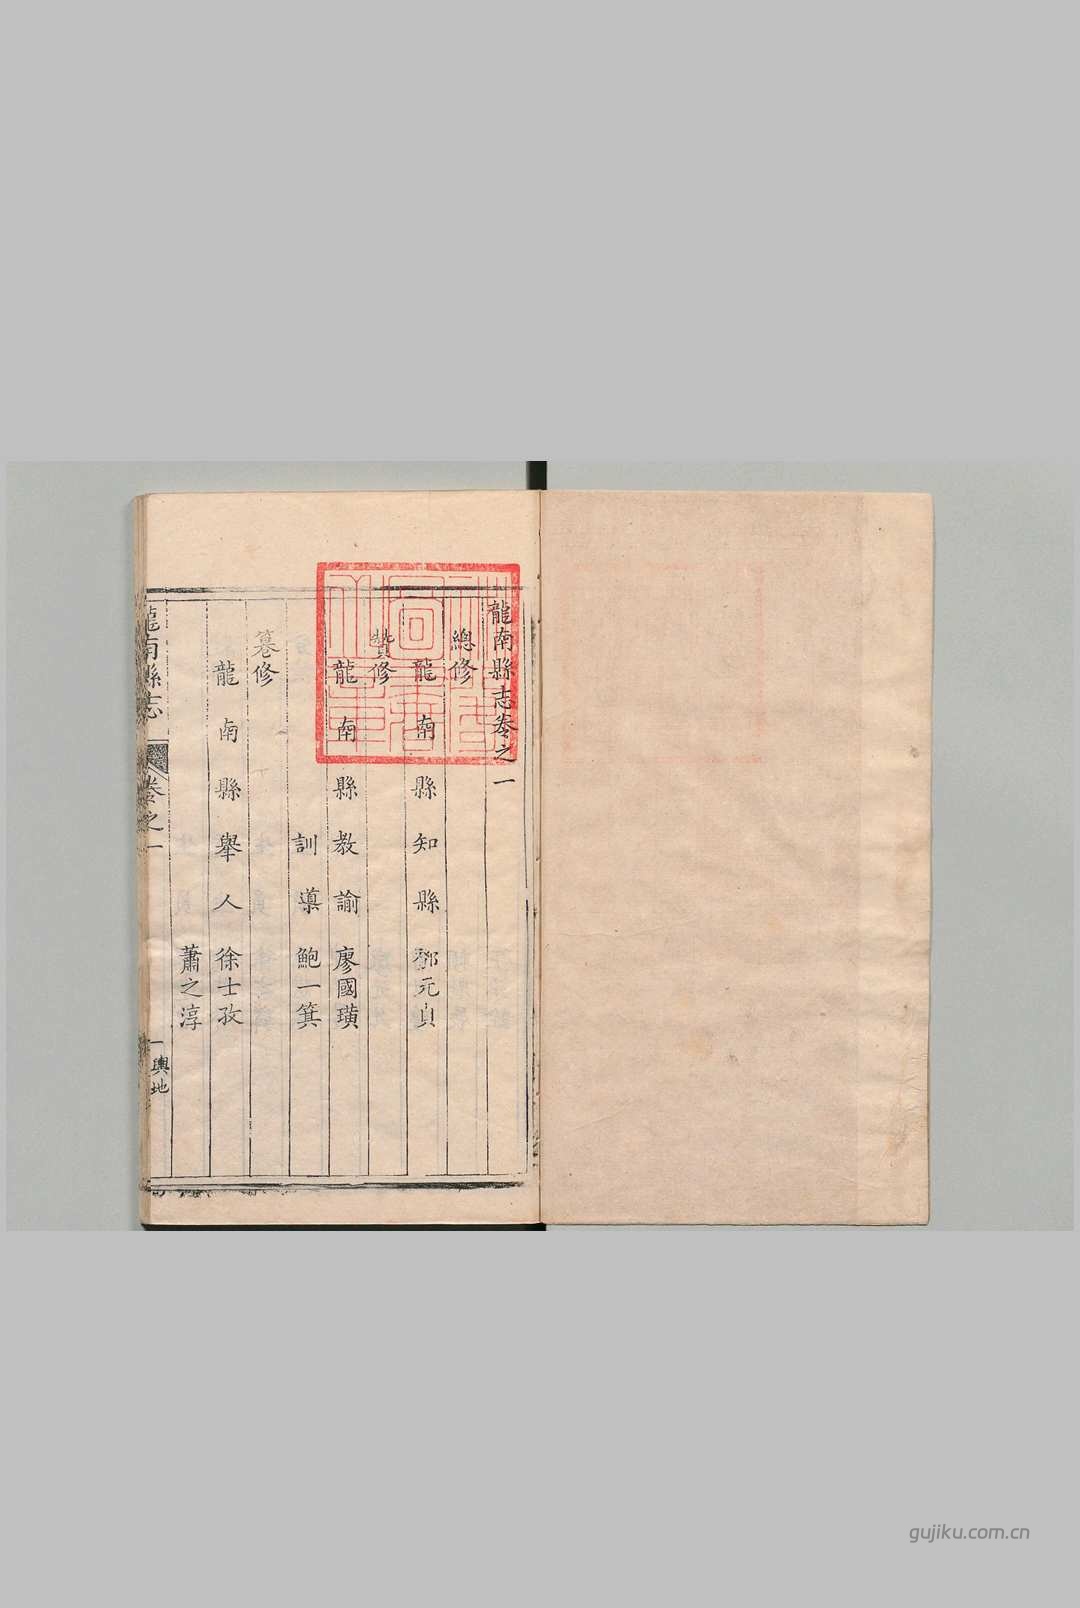 龍南縣志卷之一
總修
龍南縣知縣鄧元貞
贊修
龍南縣教諭廖國璜
訓導鮑一箕
篹修
龍南縣舉人徐士孜
蕭之淳
龍南縣志 卷之一 一 輿地
gujiku.com.cn